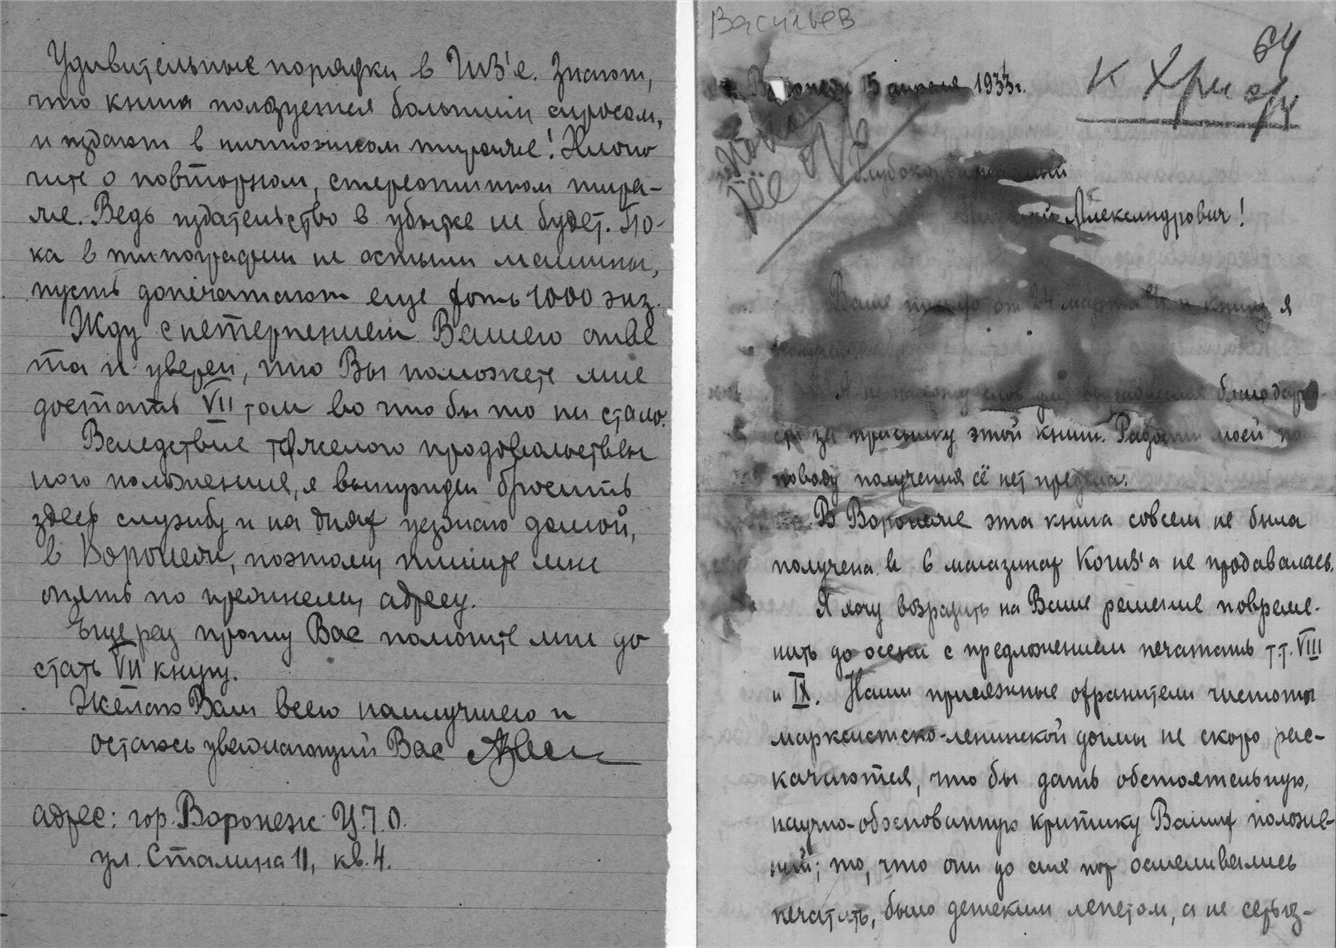 Удивительные порядки в ГИЗ'е. Знают,
что книга пользуется большим спросом,
и издают в ничтожном тираже! Хлопо
чите о повторном, стереотипном тира-
же. Ведь издательство в убытке не будет. По-
ка в типографии не остыли машины,
пусть допечатают еще хоть 1000 экз.
Жду с нетерпением Вашего отве
та и уверен, что Вы поможете мне
достать VII том во что бы то ни стало.
Вследствие тяжелого продовольствен
ного положения, я вынужден бросить
здесь службу и на днях уезжаю домой,
в Воронеж, поэтому пишите мне
опять по прежнему адресу.
Еще раз прошу Вас помогите мне до
стать VII книгу.
Желаю Вам всего наилучшего и
остаюсь уважающий Вас
адрес: гор. Воронеж У.7.0.
ул. Сталина 11, кв. 4.
Васильев
64
К Христ
Воронеж 15 апреля 1933г.
Глубокоуважаемый
Николай Александрович!
Ваше письмо от 24 марта и книгу я
Я не нахожу слов для выражения благодарно-
сти за присылку этой книги. Радости моей по
поводу получения её нет предела.
В Воронеже эта книга совсем не была
получена и в магазинах Когиз'а не продавалась.
Я хочу возразить на Ваше решение повреме-
нить до осени с предложением печатать т.т. VIII
и IX. Наши присяжные охранители чистоты
марксистско-ленинской догмы не скоро рас-
качаются, что бы дать обстоятельную,
научно-обоснованную критику Ваших положе-
ний; то, что они до сих пор осмеливались
печатать, было детским лепетом, а не серьз-